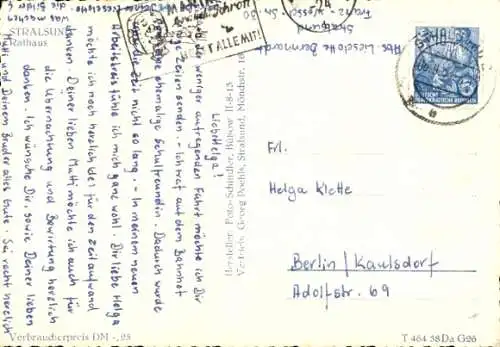 STRALSUND
Rathaus
Abs. Lieselotte
Stralsund
Franz-Wessel-Str. 30
ALLE MIT!
Liebe Helga!
der weniger aufregenden Fahrt möchte ich Dir
Zeilen senden. - Ich traf auf dem Bahnhof
ehemalige Schulfreundin. Dadurch wurde
die Zeit nicht so lang. - In meinem neuen
Arbeitskreis fühle ich mich ganz wohl. Dir liebe Helga
möchte ich noch herzlich für den Zeitaufwand
danken. Deiner lieben Mutti möchte ich auch für
die Übernachtung und Bewirtung herzlich
danken. Ich wünsche Dir, sowie Deiner lieben
Mutti und Deinem Bruder alles Gute. Sei recht herzlich
Hersteller: Foto-Schindler, Bützow II-8-13
Vertrieb: Georg Poethk, Stralsund, Mönchstr. 16
Frl.
Helga Klette
Berlin/Kaulsdorf
Adolfstr. 69
DEUTSCHE DEMOKRATISCHE REPUBLIK
Verbraucherpreis DM -,25
T 464 38 Da G26